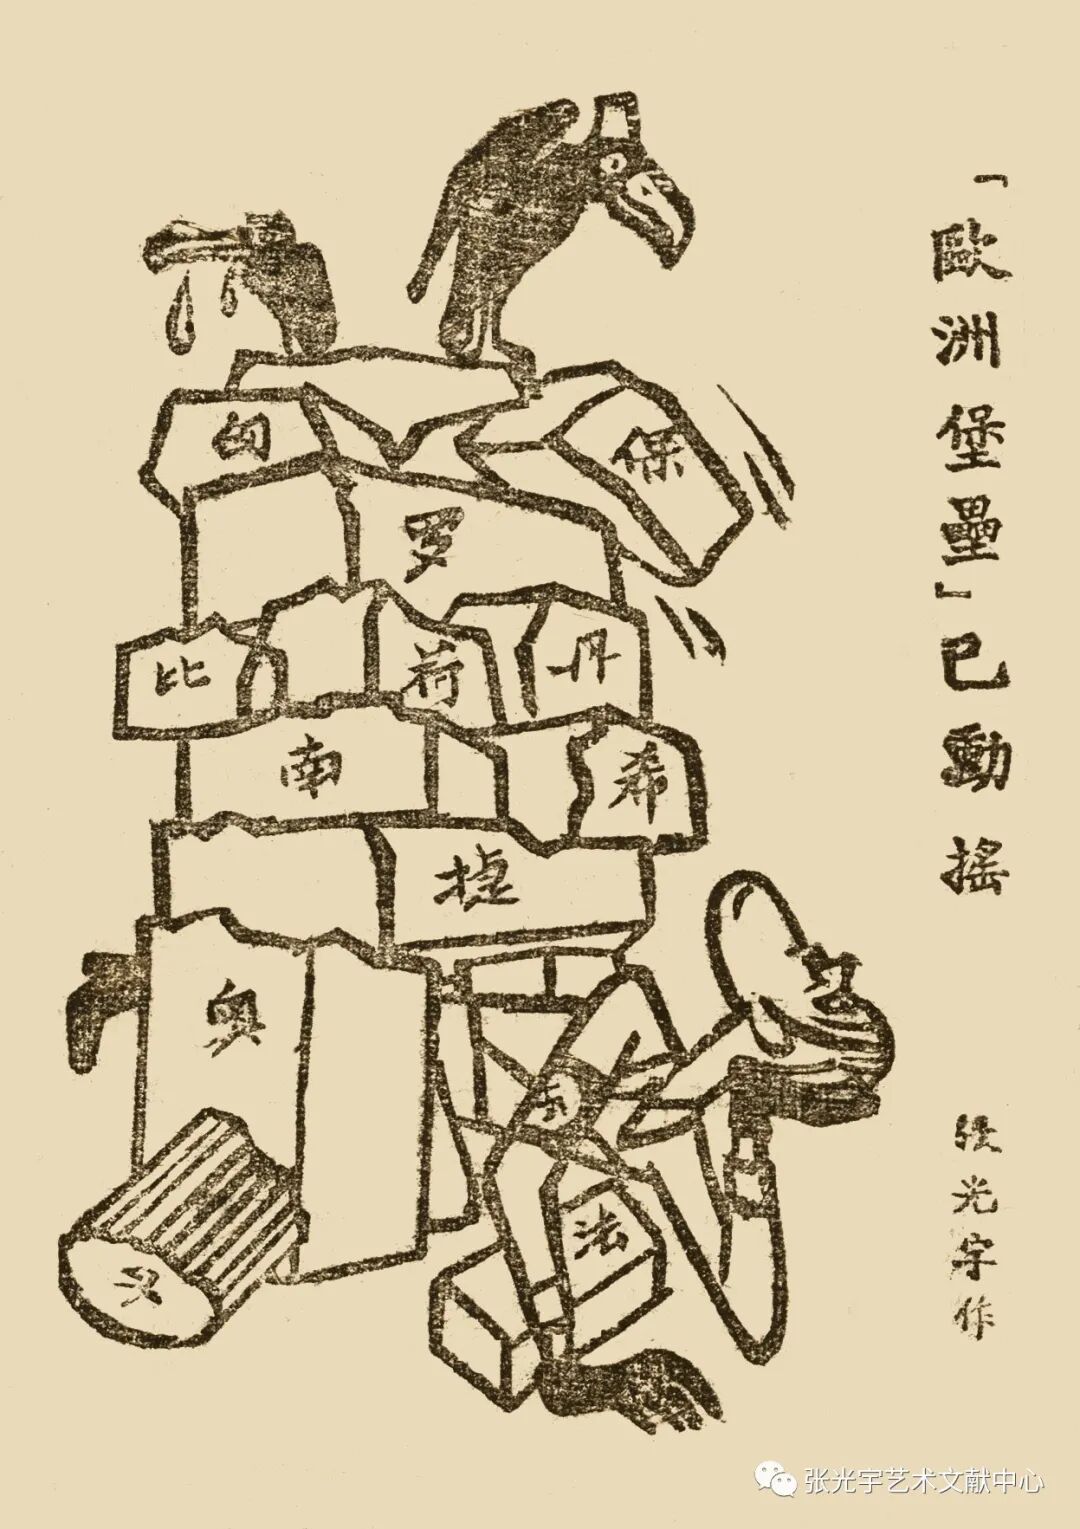 「歐洲堡壘」已動搖
匈
保
罗
比
荷
丹
南
希
捷
奥
法
張光宇作
张光宇艺术文献中心